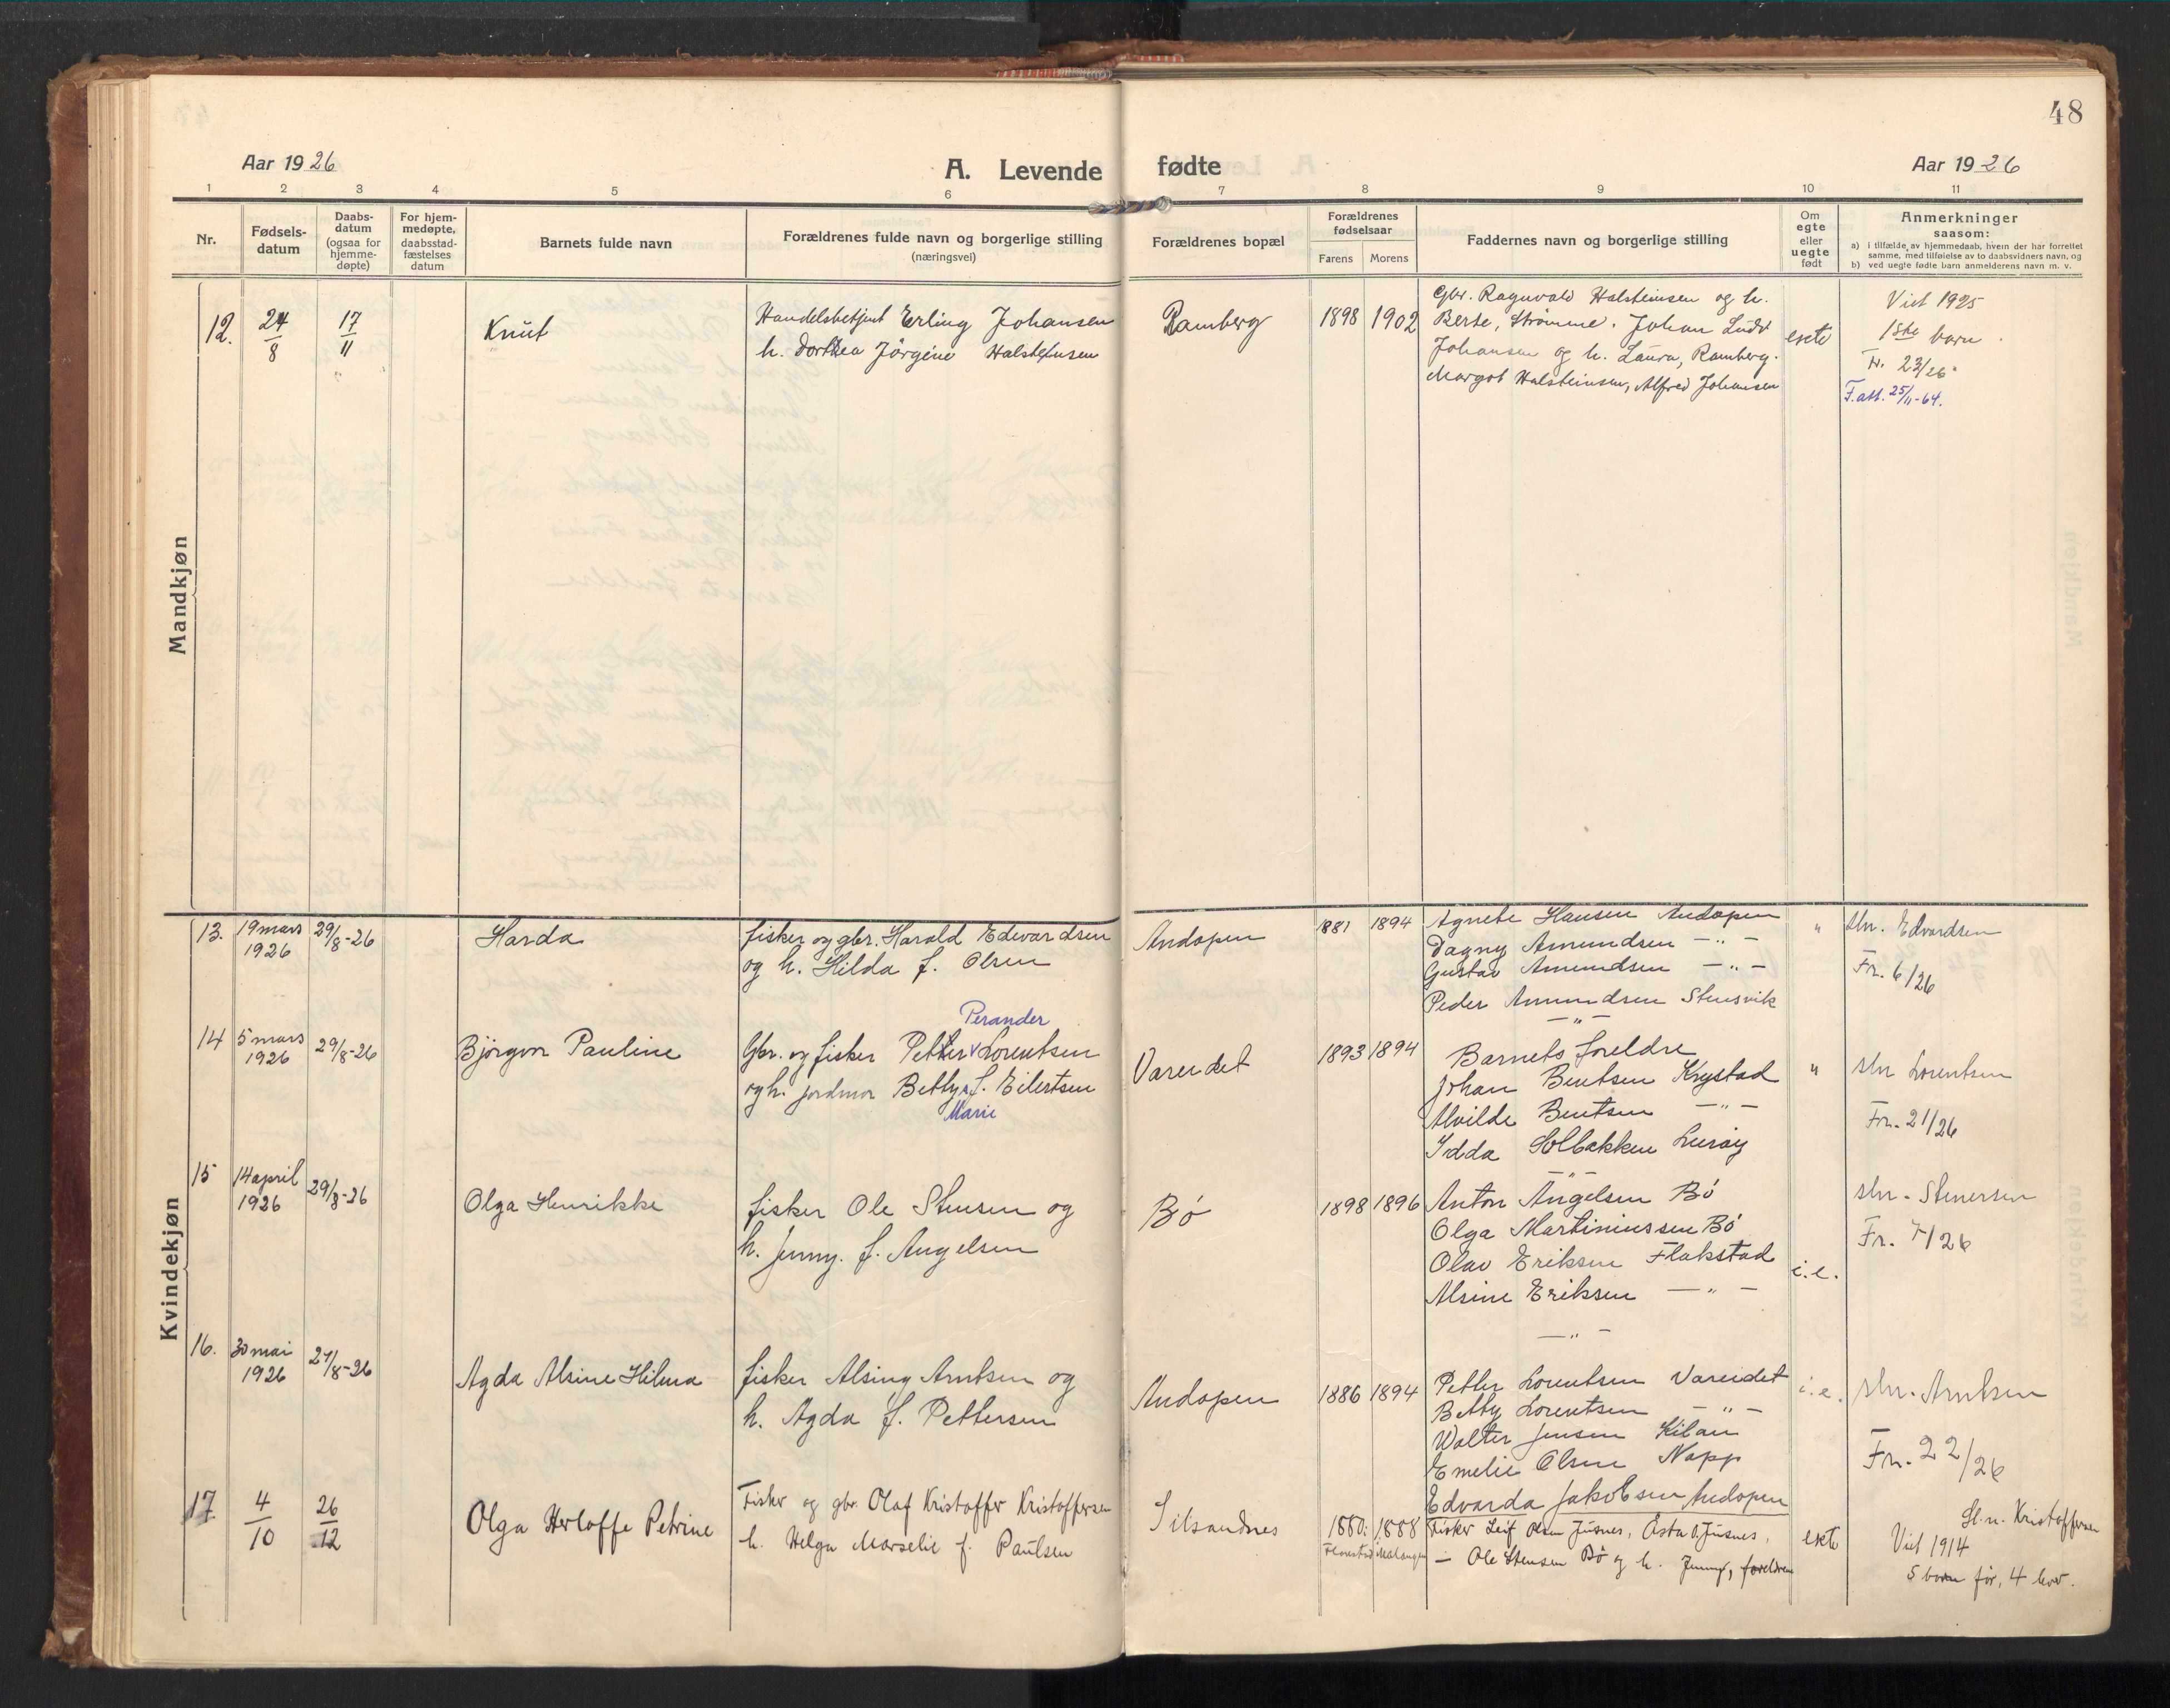 48
Aar 1926
A. Levende fødte
Aar 1926
1 2 3 4 5 6 7 8 9 10 11
Nr.
Fødsels-
datum
Daabs-
datum
(ogsaa for
hjemme-
døpte)
For hjem-
medøpte,
daabsstad-
fæstelses
datum
Barnets fulde navn
Forældrenes fulde navn og borgerlige stilling
(næringsvei)
Forældrenes bopæl
Forældrenes
fødselsaar
Farens Morens
Faddernes navn og borgerlige stilling
Om
egte
eller
uegte
født
Anmerkninger
saasom:
a) i tilfælde av hjemmedaab, hvem der har forrettet
samme, med tilføielse av to daabsvidners navn, og
b) ved uegte fødte barn anmelderens navn m. v.
Mandkjøn
12.
24/8
17/11
Knut
Handelsbetjent Erling Johansen
h. Dorthea Jörgine Halsteinsen
Ramberg
1898 1902
Gbr. Ragnvald Halsteinsen og h.
Berte, Strömme. Johan Ludv
Johansen og h. Laura, Ramberg.
Margot Halsteinsen, Alfred Johansen
ekte
Viet 1925
1ste barn
Fr. 23/26
F.att. 25/11-64.
Kvindekjøn
13.
19 mars
1926
29/8-26
Harda
fisker og gbr. Harald Edvardsen
og h. Hilda f. Olsen
Andopen
1881 1894
Agnete Hansen Andopen
Dagny Amundsen — " —
Gustav Amundsen — " —
Peder Amundsen Stensvik
— " —
"
sln. Edvardsen
Fr. 6/26
14
5 mars
1926
29/8-26
Björgvor Pauline
Perander
Gbr. og fisker Petter v Lorentsen
og h. jordmor Betty f. Eilertsen
Marie
Vareidet
1893 1894
Barnets foreldre
Johan Bentsen Krystad
Alvilde Bentsen — " —
Idda Solbakken Luröy
— " —
"
sln Lorentsen
Fr. 21/26
15
14 april
1926
29/8-26
Olga Henrikke
fisker Ole Stensen og
h. Jenny. f. Angelsen
Bö
1898 1896
Anton Angelsen Bö
Olga Martiniussen Bö
Olav Eriksen Flakstad
Alsine Eriksen — " —
— " —
i.e.
sln. Stenersen
Fr. 7/26
16.
30 mai
1926
29/8-26
Agda Alsine Hilma
fisker Alsing Arntsen og
h. Agda f. Pettersen
Andopen
1886 1894
Petter Lorentsen Vareidet
Betty Lorentsen — " —
Walter Jensen Kilan
Emelie Olsen Napp
Edvarda Jakobsen Andopen
i.e.
sln. Arntsen
Fr. 22/26
17
4/10
26/12
Olga Herloffe Petrine
Fisker og gbr. Olaf Kristoffer Kristoffersen
h. Helga Marselie f. Paulsen
Silsandnes
1880. 1888
Malangen
Fisker Leif Olsen Jusnes, Asta O. Jusnes,
— Ole Stensen Bö og h. Jenny, foreldrene
ekte
Sl.n. Kristoffersen
Viet 1914
5 barn för, 4 lever.